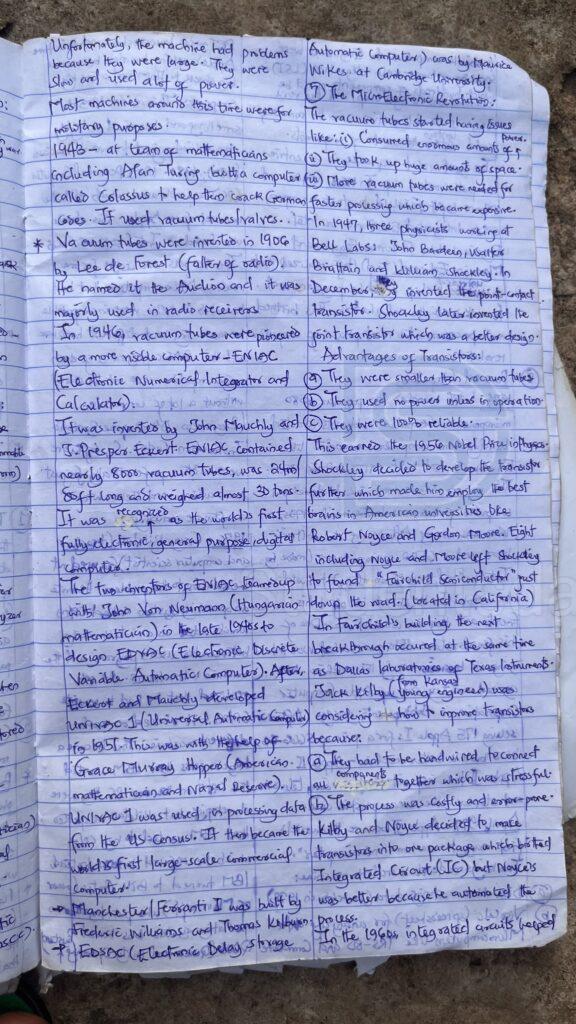 Unfortunately, the machine had problems
because they were large. They were
slow and used a lot of power.
Most machines around this time were for
military purposes.
1943 - at team of mathematicians
including Alan Turing built a computer
called Colossus to help them crack German
codes. It used vacuum tubes/valves.
* Vacuum tubes were invented in 1906
by Lee de Forest (father of radio).
He named it the Audion and it was
majorly used in radio receivers
In 1946, vacuum tubes were pioneered
by a more notable computer - ENIAC
(Electronic Numerical Integrator and
Calculator).
It was invented by John Mauchly and
J. Presper Eckert. ENIAC contained
nearly 8000 vacuum tubes, was 24m/
80ft long and weighed almost 30 tons.
It was recognized as the world's first
fully electronic, general purpose, digital
computer.
The two inventors of ENIAC teamed up
with John Von Neumann (Hungarian
mathematician) in the late 1940s to
design EDVAC (Electronic Discrete
Variable Automatic Computer). After,
Eckert and Mauchly developed
UNIVAC 1 (Universal Automatic Computer)
in 1951. This was with the help of
Grace Murray Hopper (American
mathematician and Naval Reserve).
UNIVAC 1 was used in processing data
from the US Census. It then became the
world's first large-scale commercial
computer.
→ Manchester/Ferranti I was built by
Frederic Williams and Thomas Kilburn.
→ EDSAC (Electronic Delay storage
Automatic Computer) was by Maurice
Wilkes at Cambridge University.
⑦ The MicroElectronic Revolution:
The vacuum tubes started having issues
like: (i) Consumed enormous amounts of power.
(ii) They took up huge amount of space.
(iii) More vacuum tubes were needed for
faster processing which became expensive.
In 1947, three physicists working at
Bell Labs: John Bardeen, Walter
Brattain and William Shockley. In
December, they invented the point-contact
transistor. Shockley later invented the
joint transistor which was a better design.
Advantages of Transistors:
(a) They were smaller than vacuum tubes
(b) They used no power unless in operation.
(c) They were 100% reliable.
This earned the 1956 Nobel Prize in physics.
Shockley decided to develop the transistor
further which made him employ the best
brains in American universities like
Robert Noyce and Gordon Moore. Eight
including Noyce and Moore left Shockley
to found "Fairchild Semiconductor" just
down the road. (Located in California)
In Fairchild's building, the next
breakthrough occured at the same time
as Dallas laboratories of Texas Instruments.
Jack Kilby (young engineer from Kansas) was
considering how to improve transistors
because:
(a) They had to be handwired to connect
all components together which was stressful.
(b) The process was costly and error-prone.
Kilby and Noyce decided to make
transistors into one package which birthed
Integrated Circuit (IC) but Noyce's
was better because he automated the
process.
In the 1960s integrated circuits helped